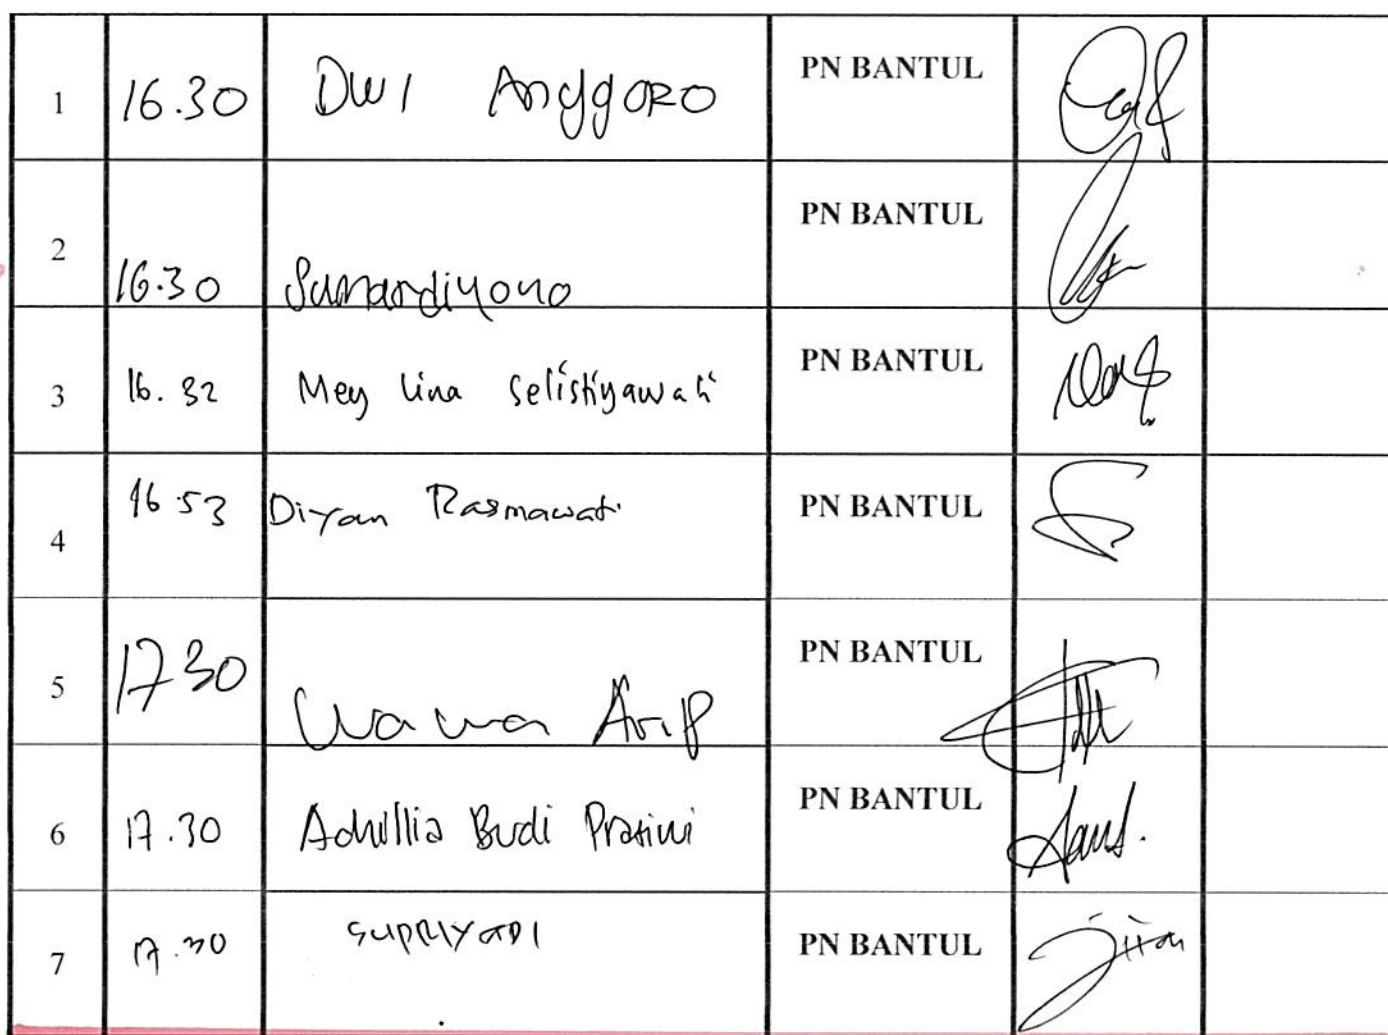 1 16.30 DWI Anggoro PN BANTUL
2 16.30 Sunardiyono PN BANTUL
3 16.32 Mey Lina Selistiyawati PN BANTUL
4 16 53 Diyan Rasmawati PN BANTUL
5 17 30 Wawa Arif PN BANTUL
6 17.30 Budi PN BANTUL
7 17.30 SUPRIYADI PN BANTUL